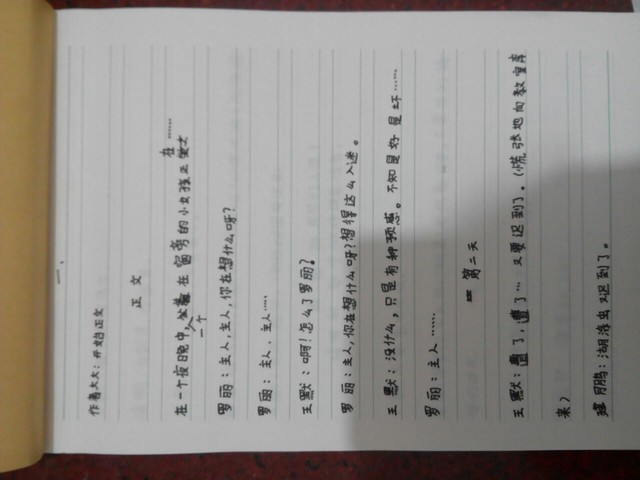 一、
作者大大：开始正文
正文
在一个夜晚中,一个坐在窗旁的小女孩正在……
罗丽：主人,主人,你在想什么呀？
罗丽：主人、主人……
王默：啊！怎么了罗丽？
罗丽：主人,你在想什么呀？想得这么入迷。
王默：没什么,只是有种预感。不知是好是坏……
罗丽：主人……
第二天
王默：遭了,遭了…又要迟到了。(慌张地向教室奔
来)
鹏：湖落虫又迟到了。